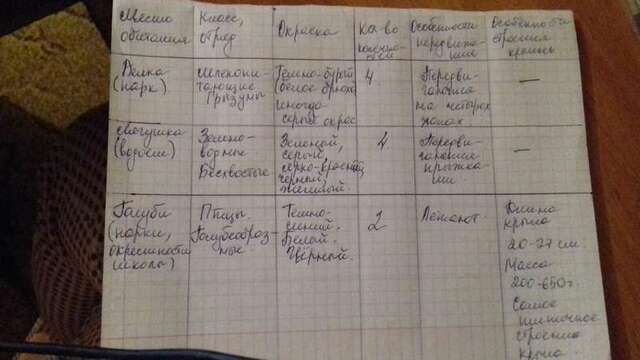 Место обитания
Класс, отряд
Окраска
Кол-во конечностей
Особенности передвижения
Особенности строения крыльев
Белка (парк)
Млекопитающие Грызуны
Тёмно-бурый (белое брюхо) иногда серый окрас
4
Передвигаются на четырех лапах
—
лягушка (водоём)
Земноводные Бесхвостые
Зеленый, серый, черный, желтый.
4
Передвигаются прыжками.
—
Голуби (парки, окрестности школы)
Птицы. Голубеобразные
Темно-синий. Белый. Чёрный.
2
Летают
Длина крыла 20-27 см. Масса 200-650г. Самое типичное строение крыла